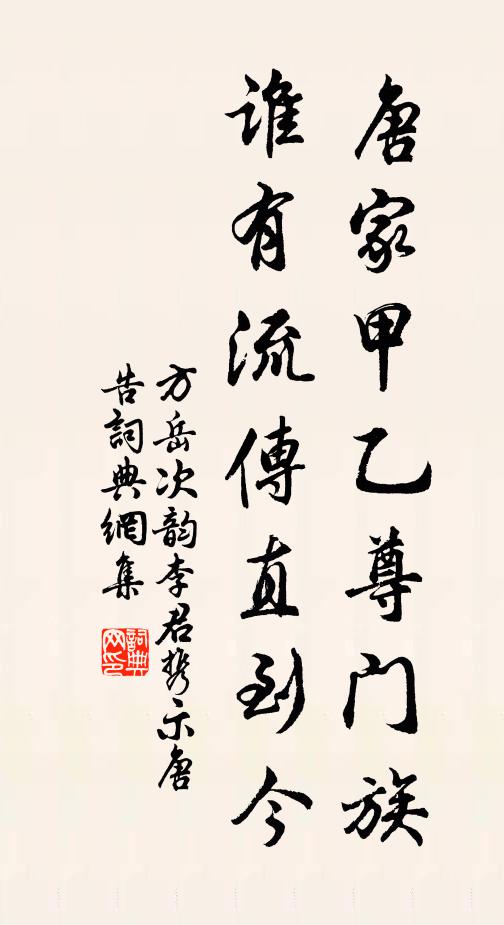 唐家甲乙尊門族
誰有流傳直到今
方岳次韵李君携示唐
告詞典網集
詞典
网印